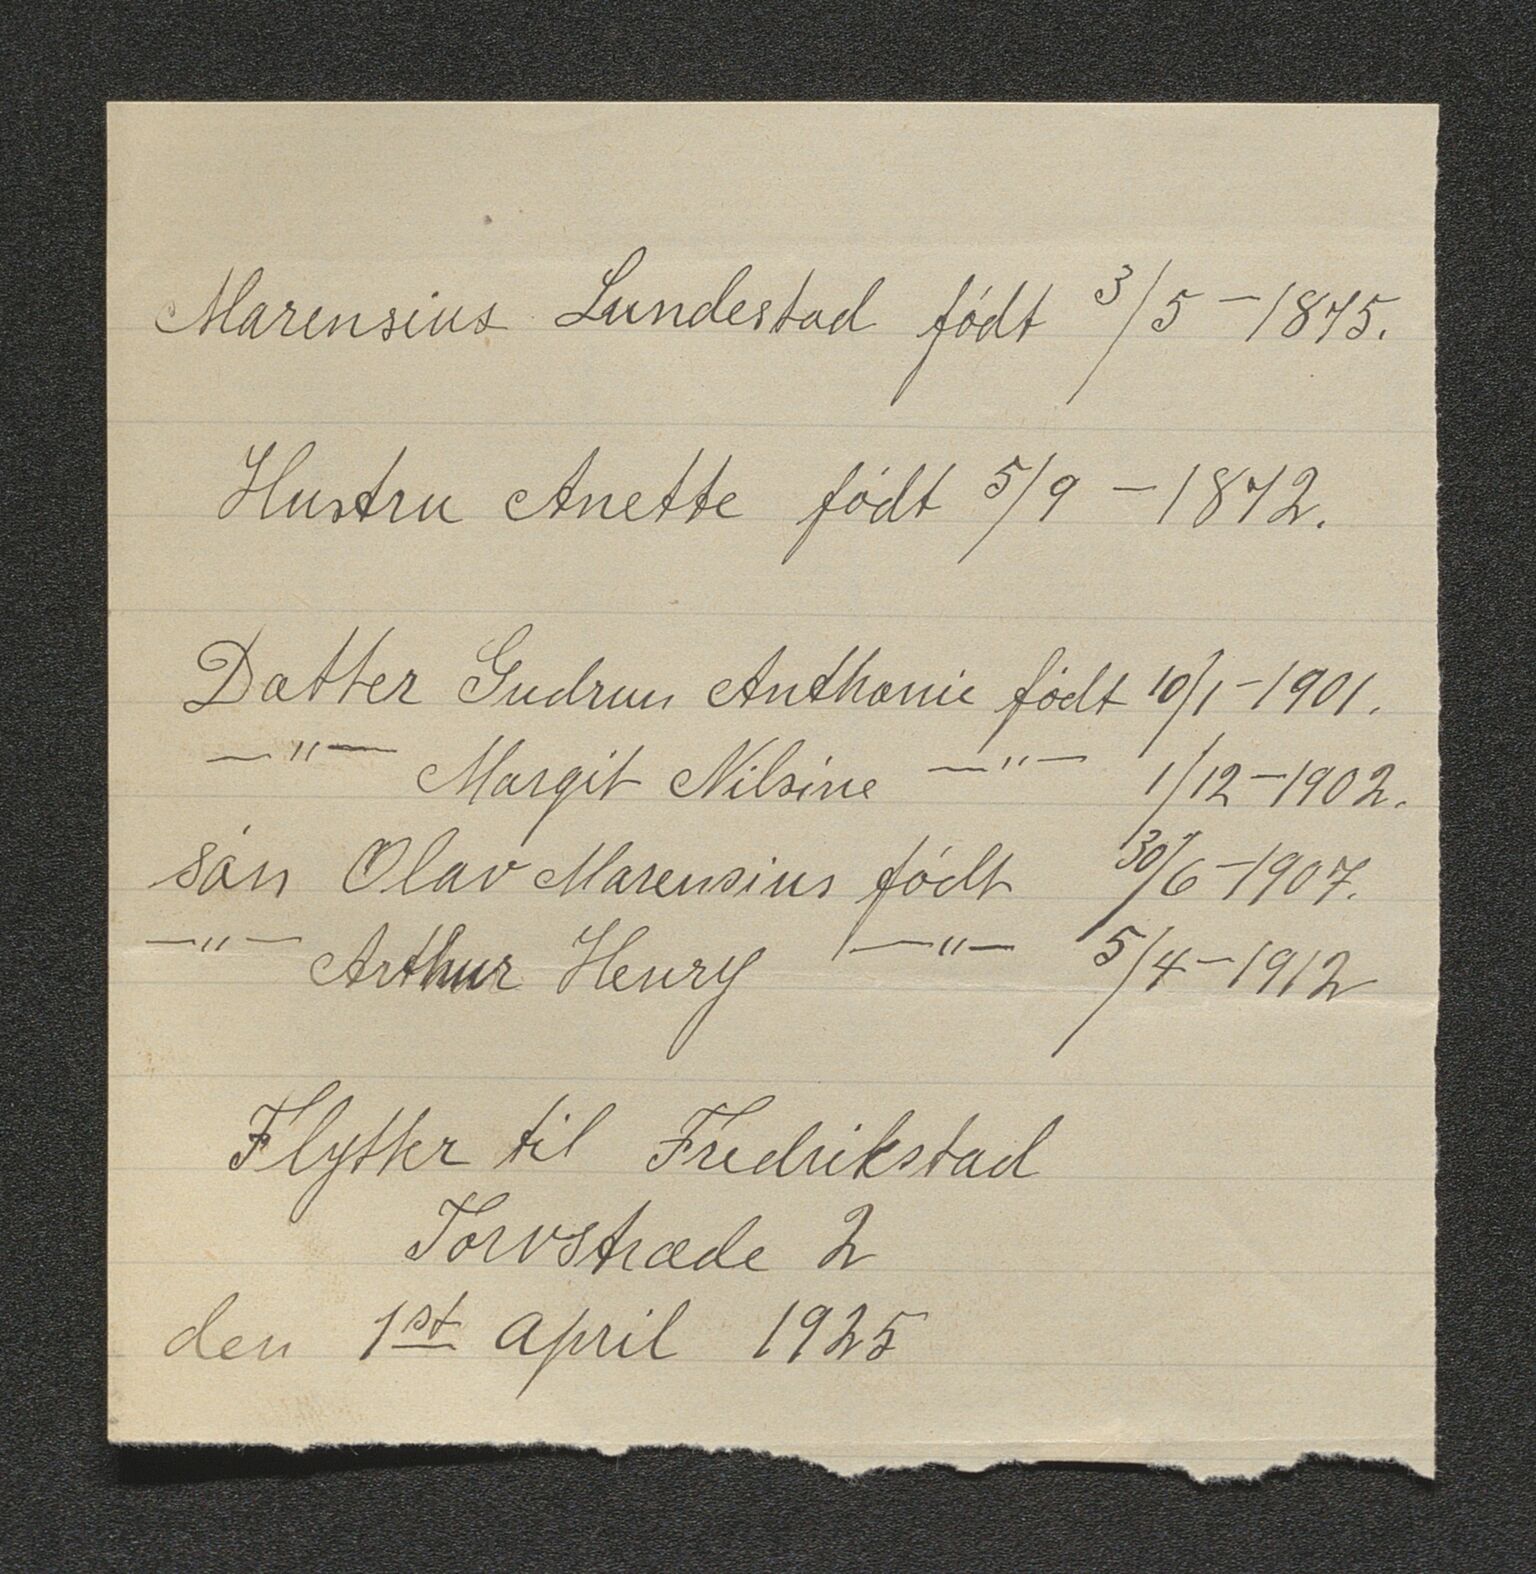 Marensius Lundestad født 3/5 - 1875.
Hustru Anette født 5/9 - 1872.
Datter Gudrun Anthonie født 10/1 - 1901.
—"— Margit Nilsine —"— 1/12 - 1902.
søn Olav Marensius født 30/6 - 1907.
—"— Arthur Henry —"— 5/4 - 1912
Flytter til Fredrikstad
Torvstræde 2
den 1st april 1925